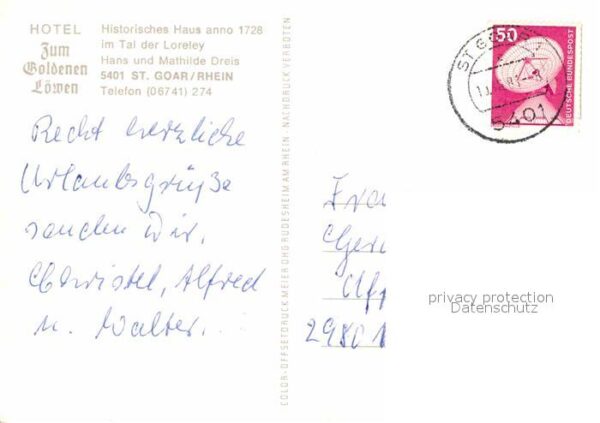 HOTEL
Zum
Goldenen
Löwen
Historisches Haus anno 1728
im Tal der Loreley
Hans und Mathilde Dreis
5401 ST. GOAR/RHEIN
Telefon (06741) 274
Recht herzliche
Urlaubsgrüße
senden Wir.
Christel, Alfred
u. Walter.
COLOR-OFFSETDRUCK MEIER OHG RÜDESHEIM AM RHEIN · NACHDRUCK VERBOTEN
50
DEUTSCHE BUNDESPOST
ST. GOAR
5401
Frau
2980
privacy protection
Datenschutz